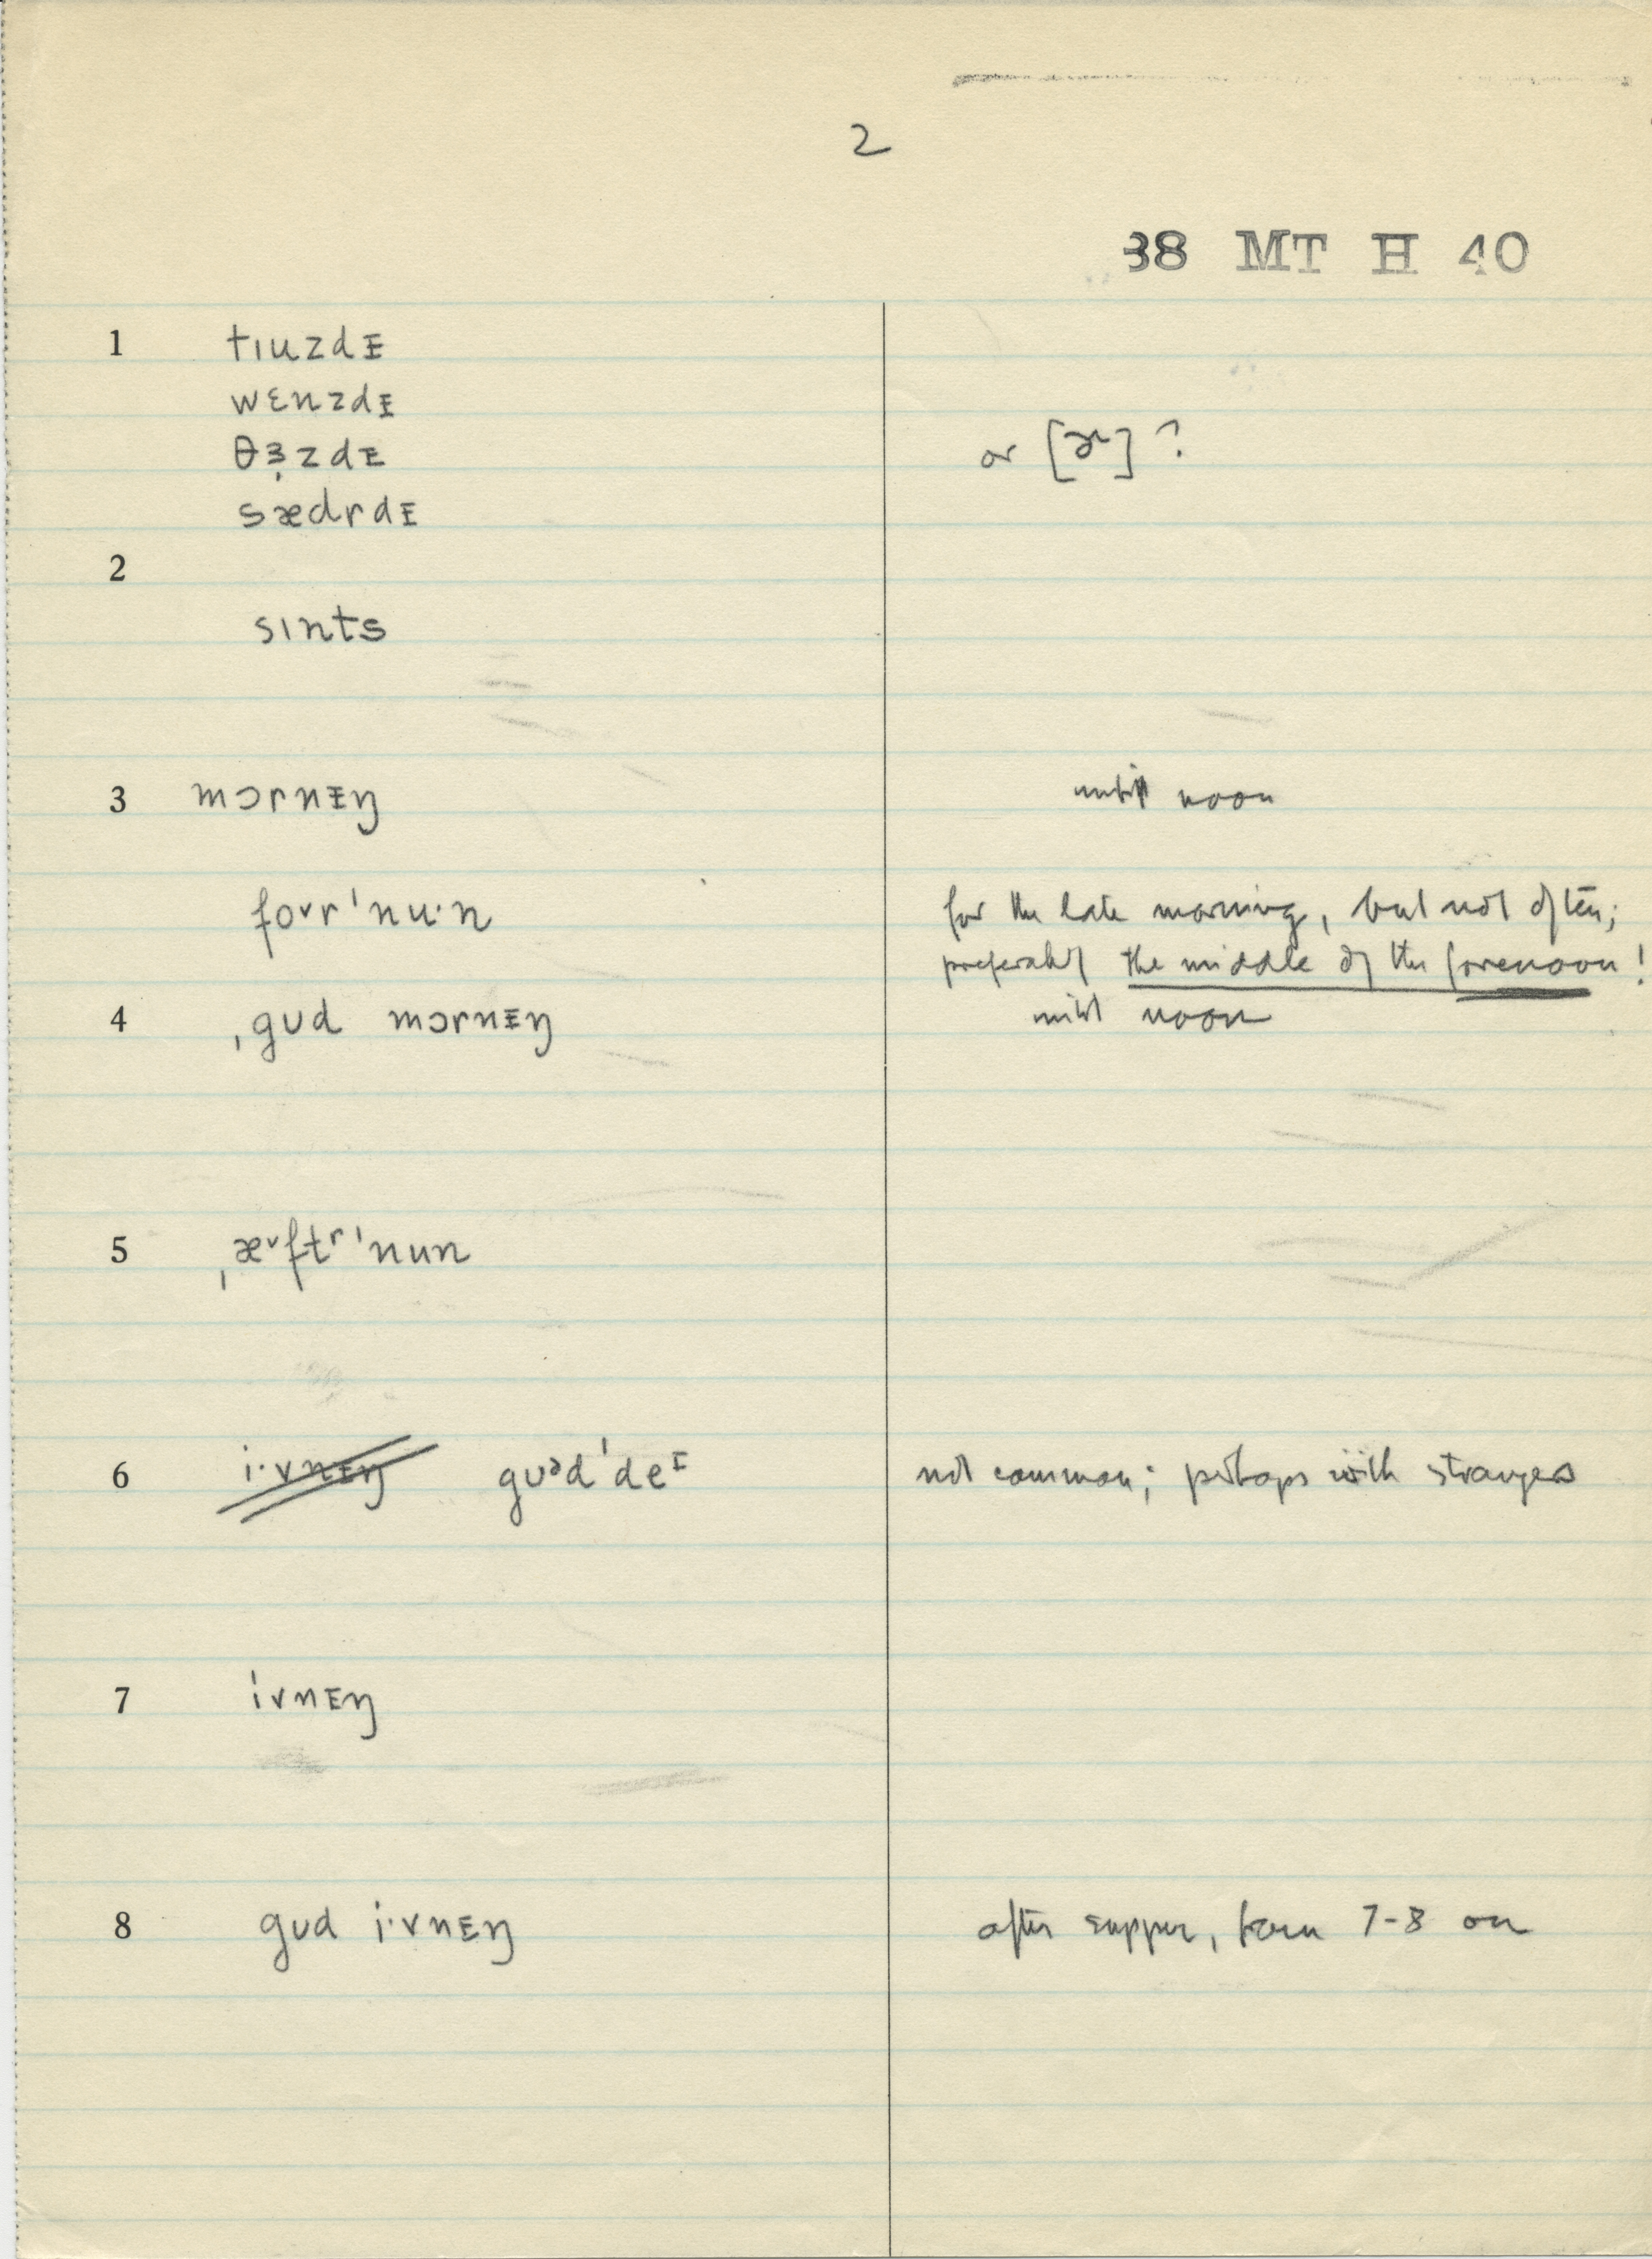 2
38 MT H 40
1 tɪuzdᵻ
wɛnzdᵻ
θɜ̣zdᵻ or [ɚ] ?
sædrdᵻ
2
sɪnts
3 mɔrnᵻŋ until noon
foᵛr'nu·n for the late morning, but not often;
preferably the middle of the forenoon!
4 ˌgʊd mɔrnᵻŋ until noon
5 ˌæᵛftʳ'nun
6 i·vnᵻŋ gʊᵊd'deᶦ not common; perhaps with strangers
7 ivnᵻŋ
8 gʊd i·vnᵻŋ after supper, from 7-8 on